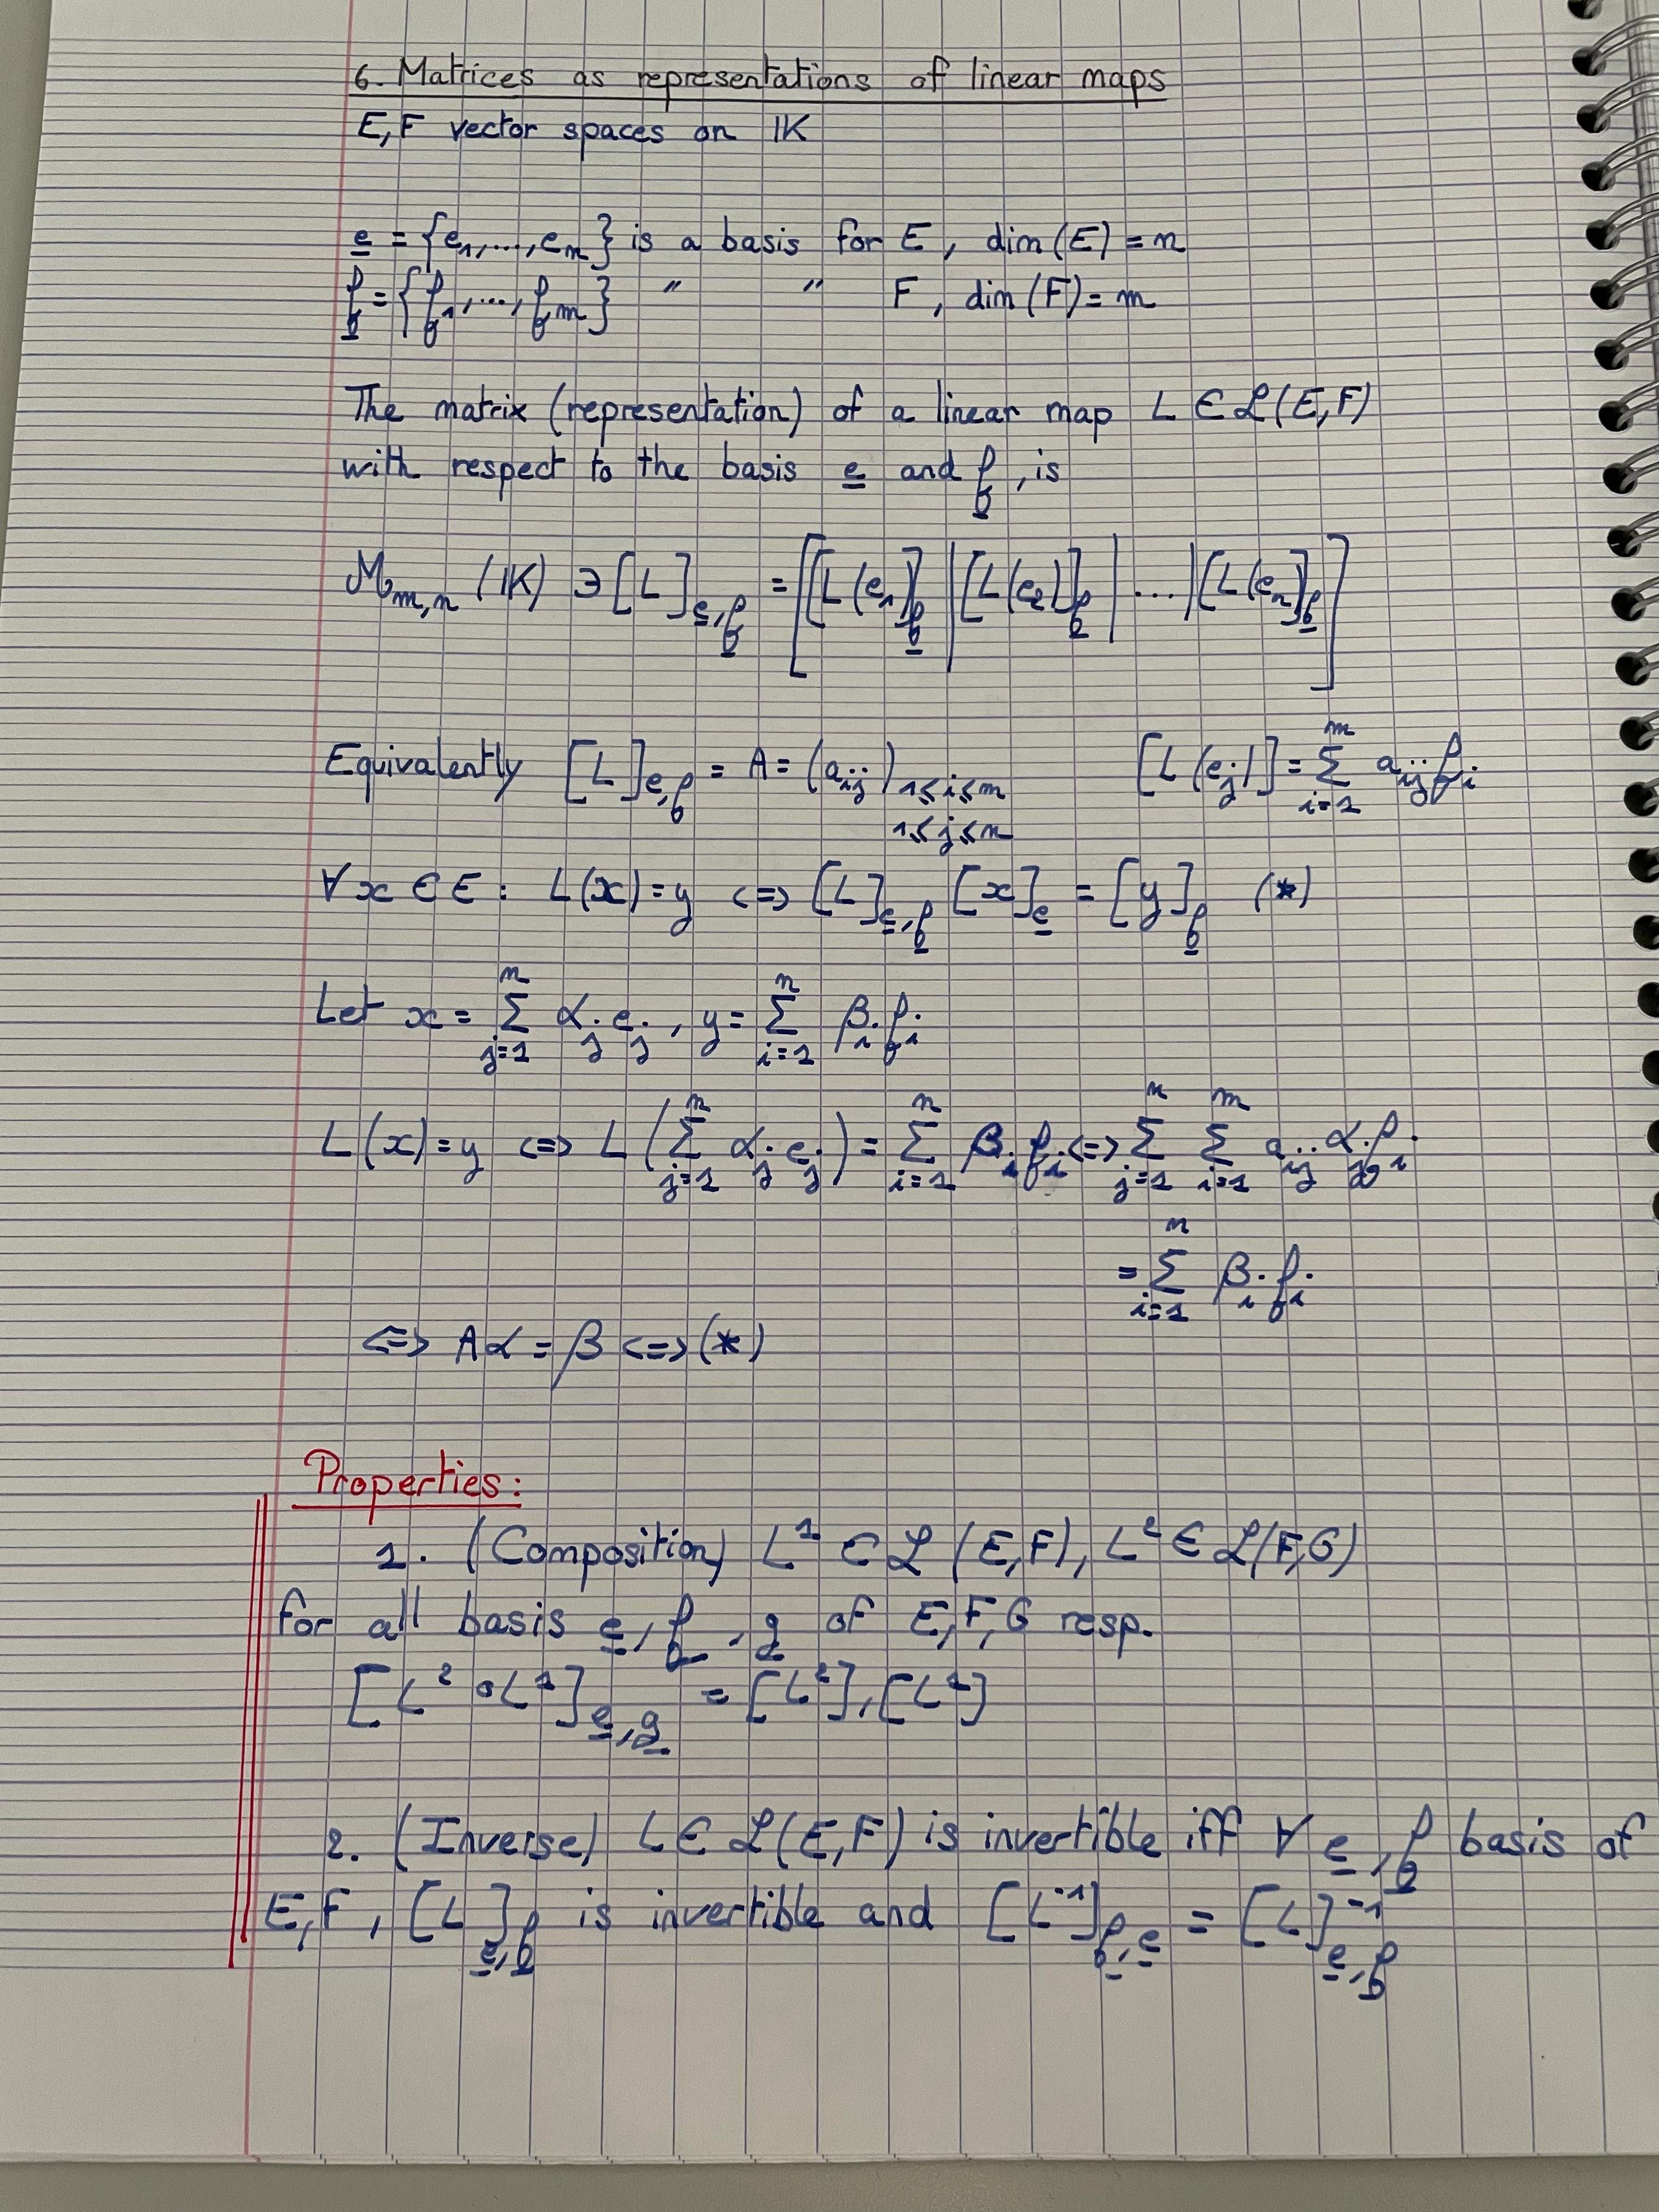 6. Matrices as representations of linear maps
E, F vector spaces on K
e = {e₁, ..., eₙ} is a basis for E, dim(E) = n
f = {f₁, ..., fₘ} " " F, dim(F) = m
The matrix (representation) of a linear map L ∈ ℒ(E,F)
with respect to the basis e and f, is
M_{m,n}(K) ∋ [L]_{e,f} = [[L(e₁]_f | [L(e₂)]_f | ... | [L(eₙ]_f]
Equivalently [L]_{e,f} = A = (a_{ij})_{1≤i≤m 1≤j≤n} [L(e_j)] = Σ_{i=1}^{m} a_{ij} f_i
∀x ∈ E : L(x) = y <=> [L]_{e,f} [x]_e = [y]_f (*)
Let x = Σ_{j=1}^{n} α_j e_j, y = Σ_{i=1}^{n} β_i f_i
L(x) = y <=> L(Σ_{j=1}^{n} α_j e_j) = Σ_{i=1}^{n} β_i f_i <=> Σ_{j=1}^{n} Σ_{i=1}^{m} a_{ij} α_j f_i
= Σ_{i=1}^{n} β_i f_i
<=> Aα = β <=> (*)
Properties:
1. (Composition) L¹ ∈ ℒ(E,F), L² ∈ ℒ(F,G)
for all basis e, f, g of E,F,G resp.
[L² ∘ L¹]_{e,g} = [L²],[L¹]
2. (Inverse) L ∈ ℒ(E,F) is invertible iff ∀ e, f basis of
E,F, [L]_{e,f} is invertible and [L⁻¹]_{f,e} = [L]⁻¹_{e,f}